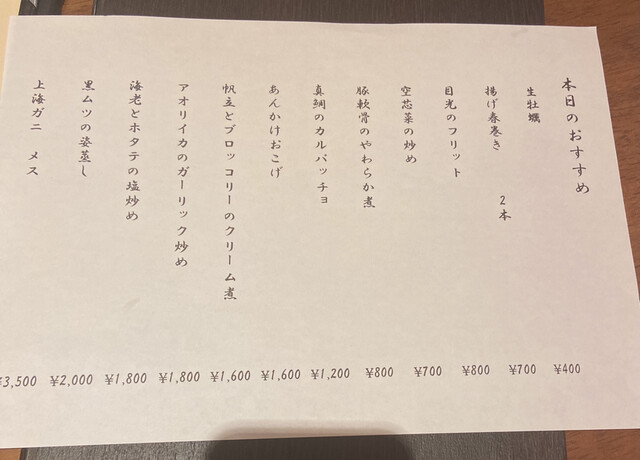 本日のおすすめ
生牡蠣 ¥400
揚げ春巻き 2本 ¥700
目光のフリット ¥800
空芯菜の炒め ¥700
豚軟骨のやわらか煮 ¥800
真鯛のカルパッチョ ¥1,200
あんかけおこげ ¥1,600
帆立とブロッコリーのクリーム煮 ¥1,600
アオリイカのガーリック炒め ¥1,800
海老とホタテの塩炒め ¥1,800
黒ムツの姿蒸し ¥2,000
上海ガニ メス ¥3,500